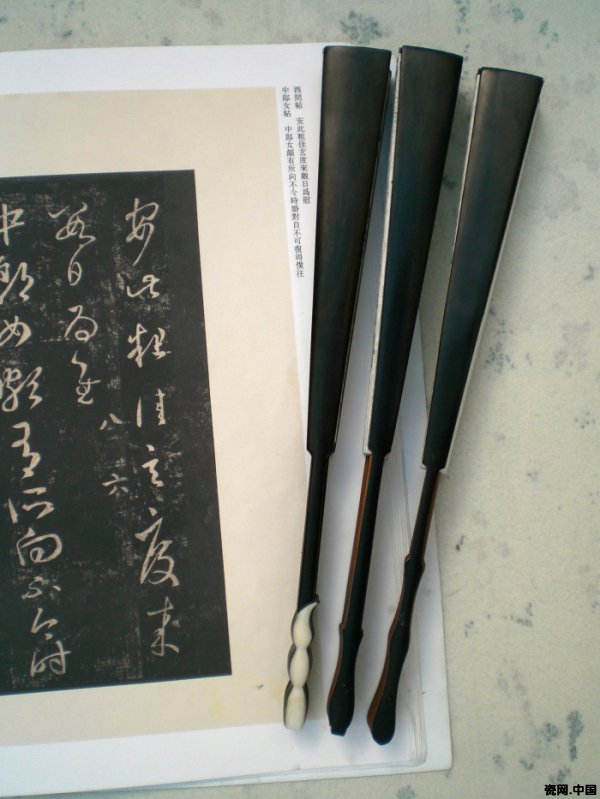 西問帖 安此粗佳玄度來數日爲慰
中郎女帖 中郎女頗有所向不今時婚對自不可復得僕往
安此粗佳玄度來
八六
數日爲慰
中郎女頗有所向不今時
瓷网.中国